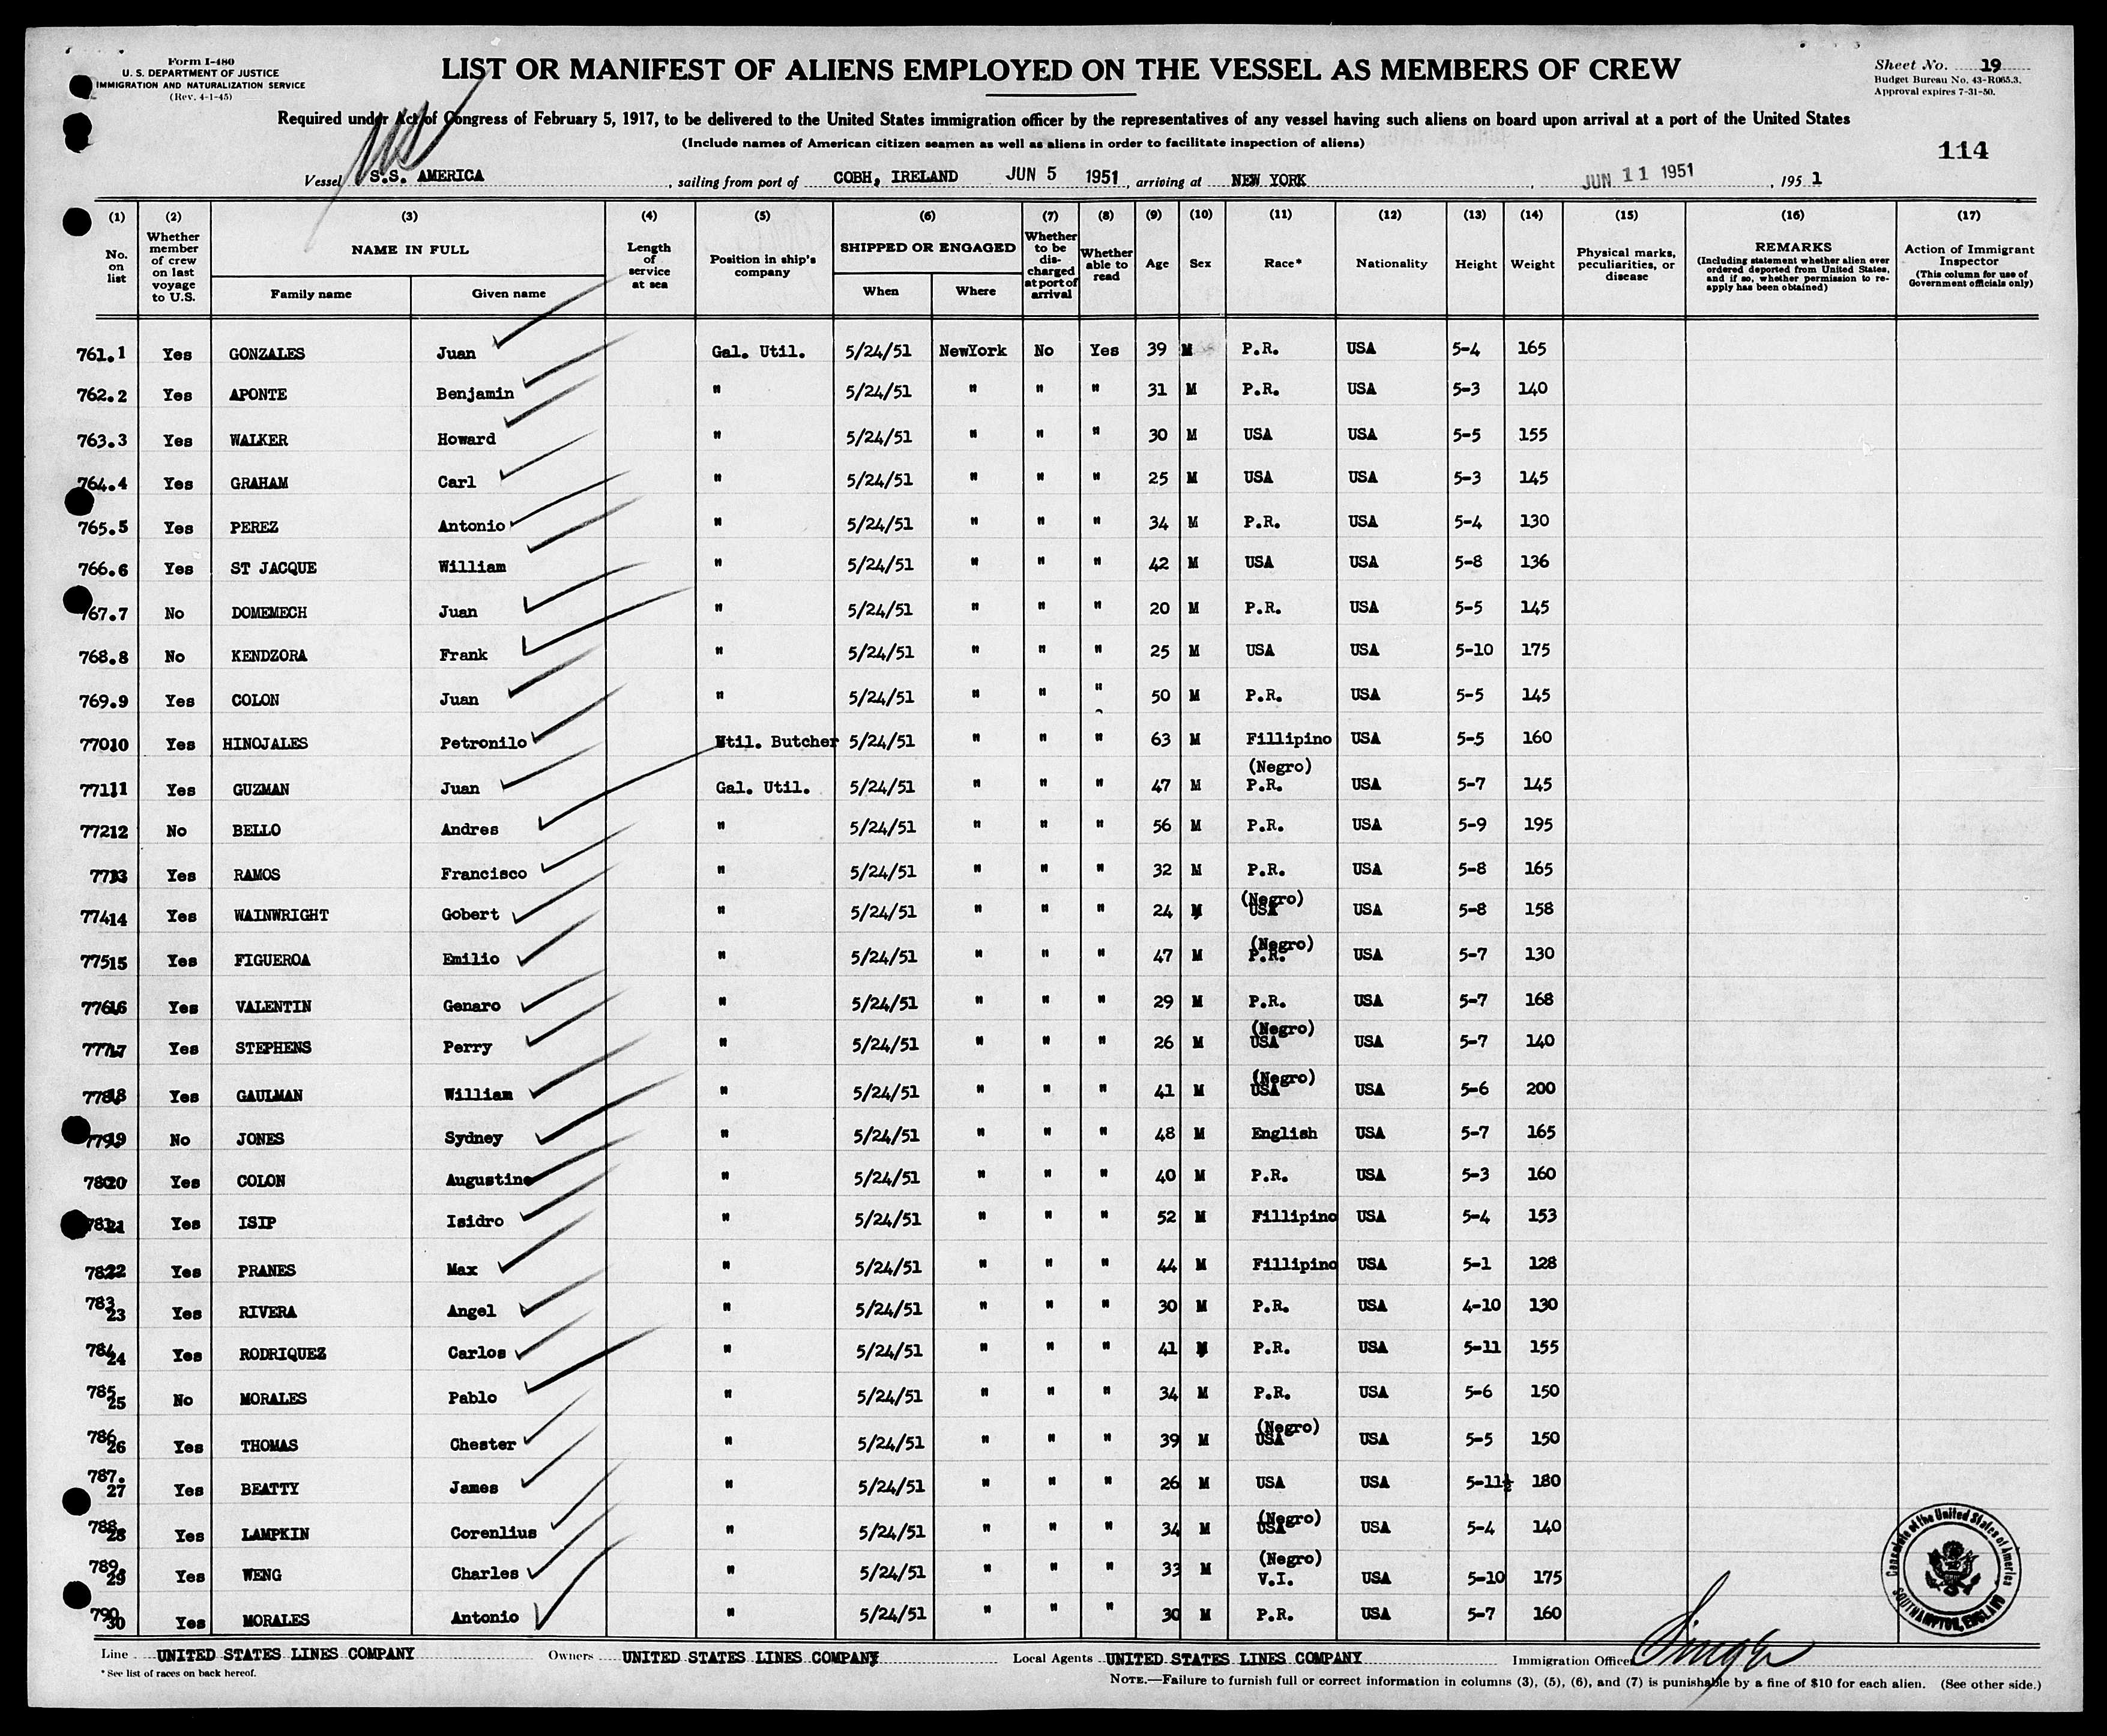 Form I-480
U. S. DEPARTMENT OF JUSTICE
IMMIGRATION AND NATURALIZATION SERVICE
(Rev. 4-1-45)
LIST OR MANIFEST OF ALIENS EMPLOYED ON THE VESSEL AS MEMBERS OF CREW
Sheet No. 19
Budget Bureau No. 43-R065.3.
Approval expires 7-31-50.
Required under Act of Congress of February 5, 1917, to be delivered to the United States immigration officer by the representatives of any vessel having such aliens on board upon arrival at a port of the United States
(Include names of American citizen seamen as well as aliens in order to facilitate inspection of aliens)
114
Vessel S.S. AMERICA, sailing from port of COBH, IRELAND JUN 5 1951, arriving at NEW YORK, JUN 11 1951, 195 1
(1) No. on list
(2) Whether member of crew on last voyage to U.S.
(3) NAME IN FULL
Family name
Given name
(4) Length of service at sea
(5) Position in ship's company
(6) SHIPPED OR ENGAGED
When
Where
(7) Whether to be discharged at port of arrival
(8) Whether able to read
(9) Age
(10) Sex
(11) Race*
(12) Nationality
(13) Height
(14) Weight
(15) Physical marks, peculiarities, or disease
(16) REMARKS
(Including statement whether alien ever ordered deported from United States, and if so, whether permission to re-apply has been obtained)
(17) Action of Immigrant Inspector
(This column for use of Government officials only)
761.1 Yes GONZALES Juan Gal. Util. 5/24/51 NewYork No Yes 39 M P.R. USA 5-4 165
762.2 Yes APONTE Benjamin " 5/24/51 " " " 31 M P.R. USA 5-3 140
763.3 Yes WALKER Howard " 5/24/51 " " " 30 M USA USA 5-5 155
764.4 Yes GRAHAM Carl " 5/24/51 " " " 25 M USA USA 5-3 145
765.5 Yes PEREZ Antonio " 5/24/51 " " " 34 M P.R. USA 5-4 130
766.6 Yes ST JACQUE William " 5/24/51 " " " 42 M USA USA 5-8 136
767.7 No DOMEMECH Juan " 5/24/51 " " " 20 M P.R. USA 5-5 145
768.8 No KENDZORA Frank " 5/24/51 " " " 25 M USA USA 5-10 175
769.9 Yes COLON Juan " 5/24/51 " " " 50 M P.R. USA 5-5 145
77010 Yes HINOJALES Petronilo Util. Butcher 5/24/51 " " " 63 M Fillipino USA 5-5 160
77111 Yes GUZMAN Juan Gal. Util. 5/24/51 " " " 47 M (Negro) P.R. USA 5-7 145
77212 No BELLO Andres " 5/24/51 " " " 56 M P.R. USA 5-9 195
77313 Yes RAMOS Francisco " 5/24/51 " " " 32 M P.R. USA 5-8 165
77414 Yes WAINWRIGHT Gobert " 5/24/51 " " " 24 M (Negro) USA USA 5-8 158
77515 Yes FIGUEROA Emilio " 5/24/51 " " " 47 M (Negro) P.R. USA 5-7 130
77616 Yes VALENTIN Genaro " 5/24/51 " " " 29 M P.R. USA 5-7 168
77717 Yes STEPHENS Perry " 5/24/51 " " " 26 M (Negro) USA USA 5-7 140
77818 Yes GAULMAN William " 5/24/51 " " " 41 M (Negro) USA USA 5-6 200
77919 No JONES Sydney " 5/24/51 " " " 48 M English USA 5-7 165
78020 Yes COLON Augustine " 5/24/51 " " " 40 M P.R. USA 5-3 160
78121 Yes ISIP Isidro " 5/24/51 " " " 52 M Fillipino USA 5-4 153
78222 Yes PRANES Max " 5/24/51 " " " 44 M Fillipino USA 5-1 128
783 23 Yes RIVERA Angel " 5/24/51 " " " 30 M P.R. USA 4-10 130
784 24 Yes RODRIQUEZ Carlos " 5/24/51 " " " 41 M P.R. USA 5-11 155
785 25 No MORALES Pablo " 5/24/51 " " " 34 M P.R. USA 5-6 150
786 26 Yes THOMAS Chester " 5/24/51 " " " 39 M (Negro) USA USA 5-5 150
787. 27 Yes BEATTY James " 5/24/51 " " " 26 M USA USA 5-11½ 180
788. 28 Yes LAMPKIN Corenlius " 5/24/51 " " " 34 M (Negro) USA USA 5-4 140
789. 29 Yes WENG Charles " 5/24/51 " " " 33 M (Negro) V.I. USA 5-10 175
790 30 Yes MORALES Antonio " 5/24/51 " " " 30 M P.R. USA 5-7 160
Consulate of the United States of America
SOUTHAMPTON, ENGLAND
Line UNITED STATES LINES COMPANY Owners UNITED STATES LINES COMPANY Local Agents UNITED STATES LINES COMPANY Immigration Officer
*See list of races on back hereof.
NOTE.—Failure to furnish full or correct information in columns (3), (5), (6), and (7) is punishable by a fine of $10 for each alien. (See other side.)